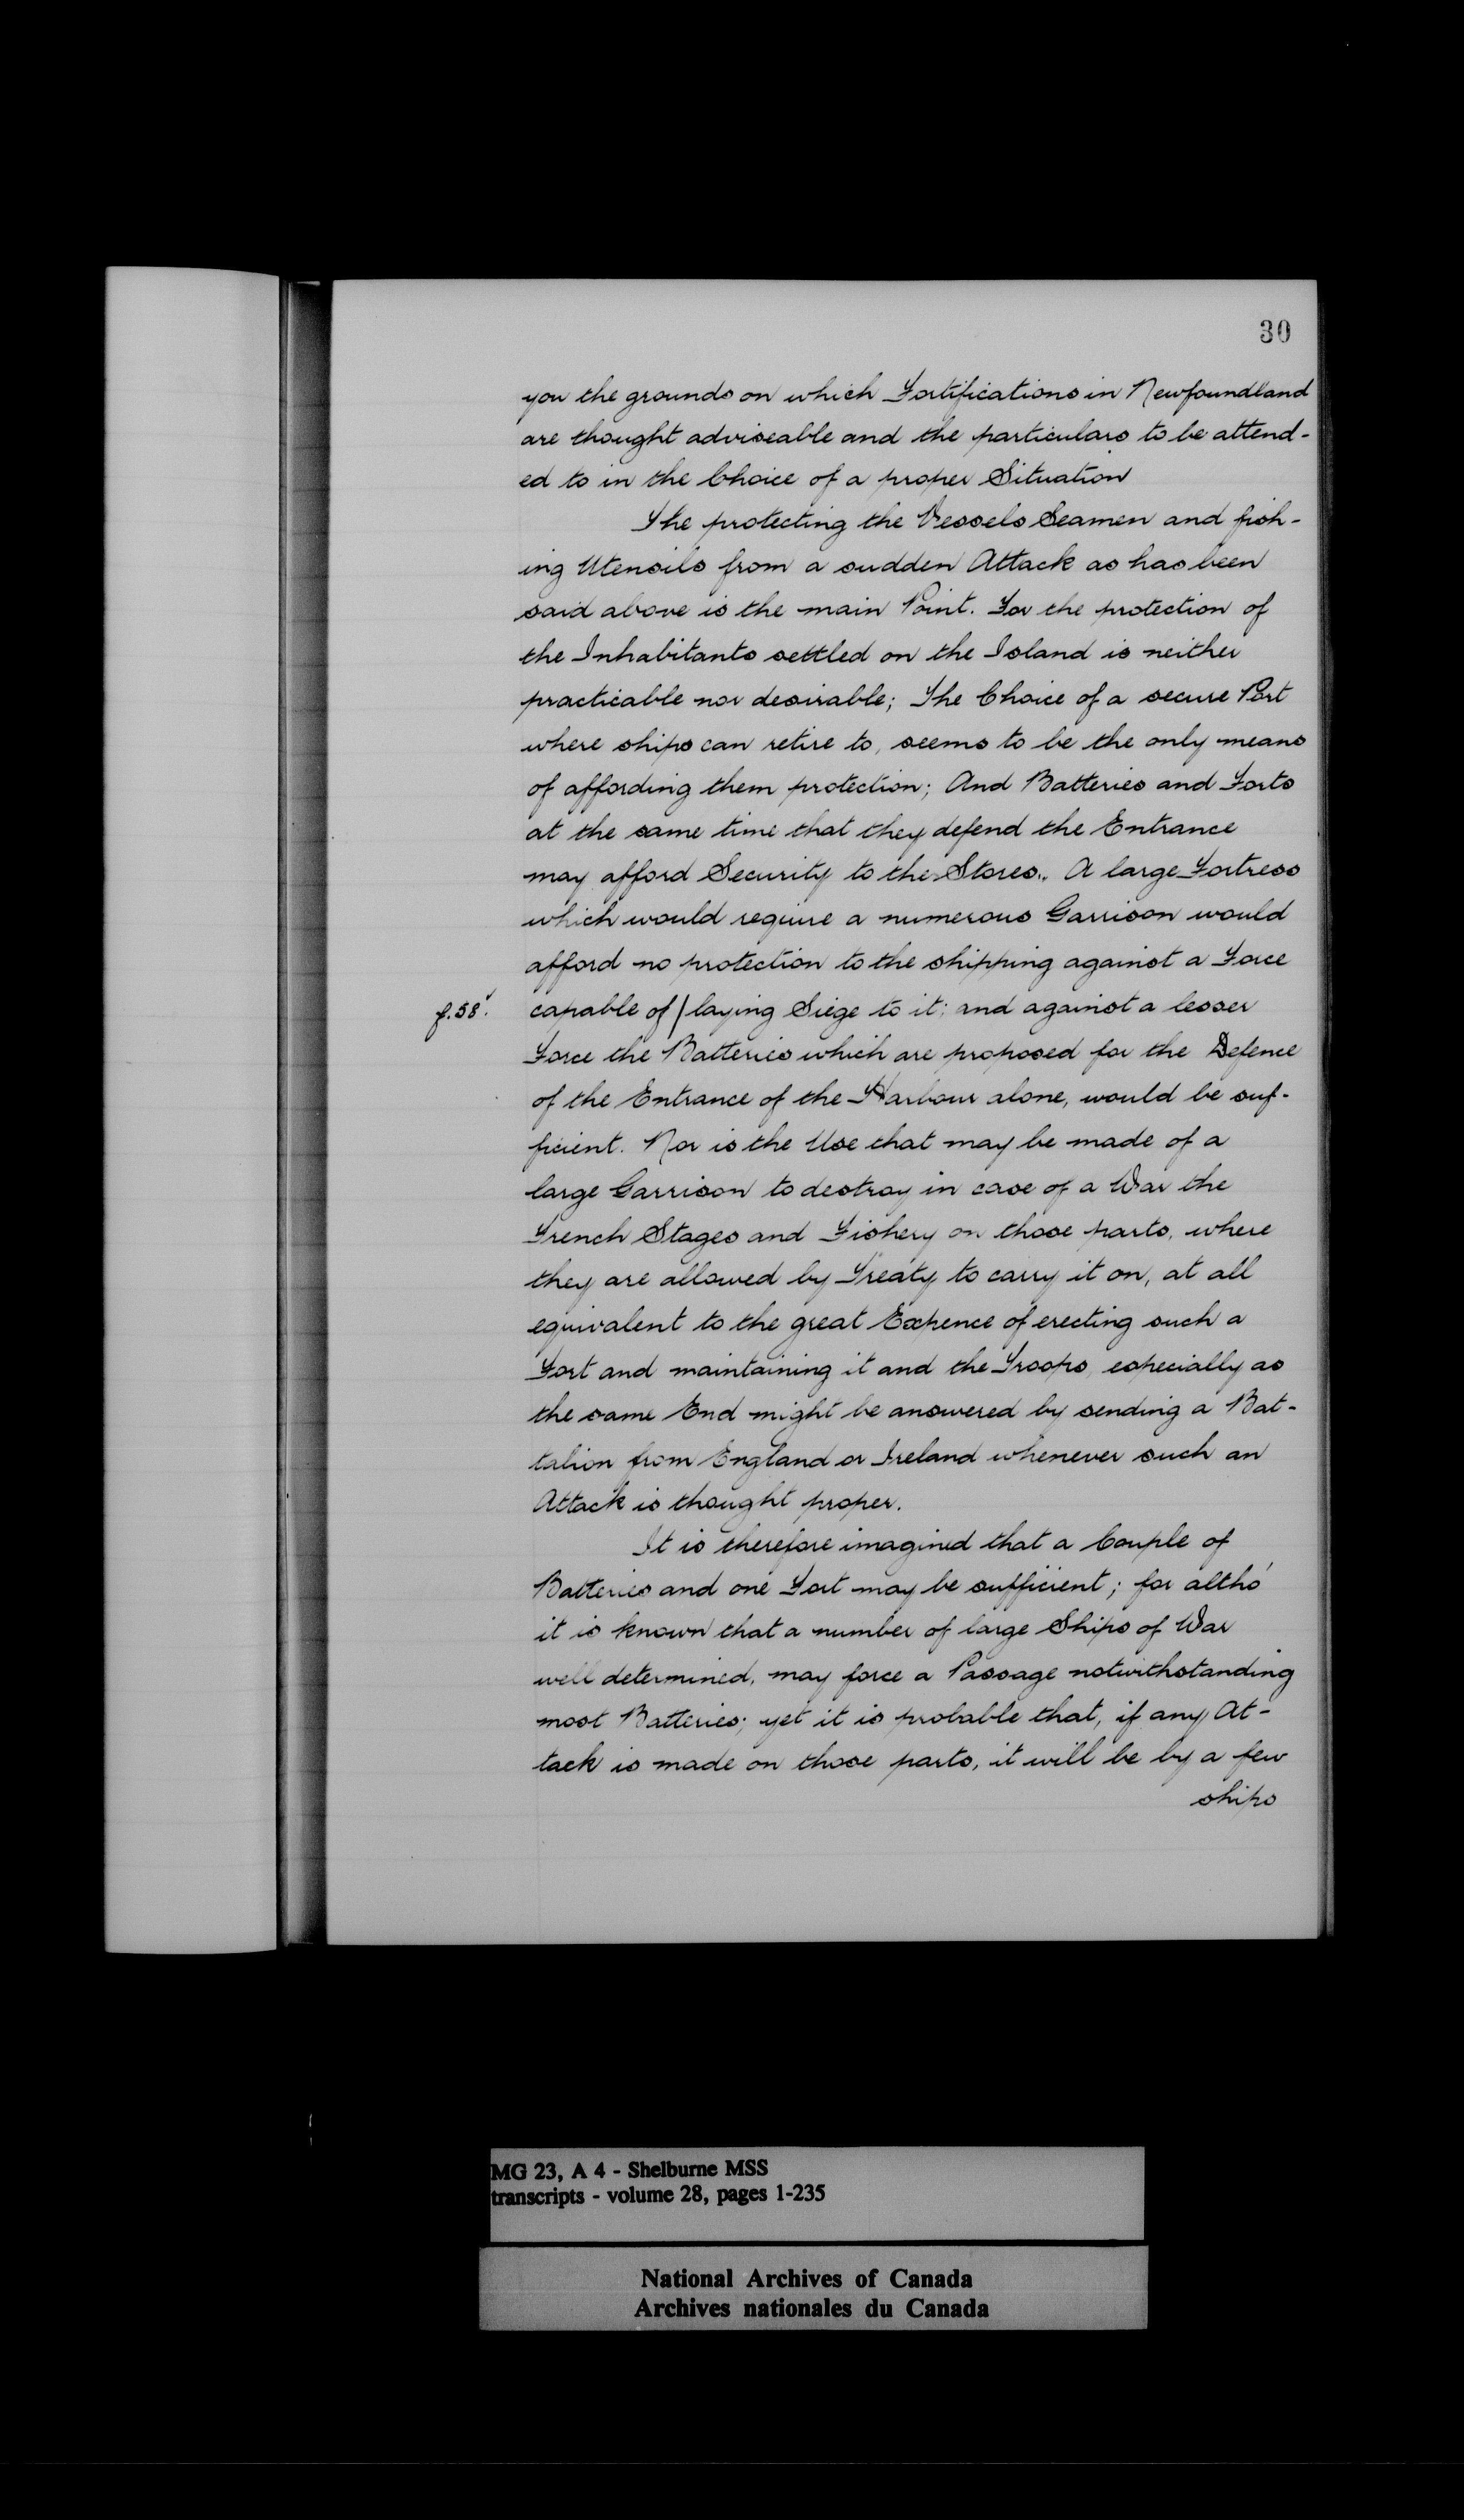 30
you the grounds on which Fortifications in Newfoundland
are thought adviseable and the particulars to be attend-
ed to in the Choice of a proper Situation
The protecting the Vessels Seamen and fish-
ing Utensils from a sudden Attack as has been
said above is the main Point. For the protection of
the Inhabitants settled on the Island is neither
practicable nor desirable; The Choice of a secure Port
where ships can retire to, seems to be the only means
of affording them protection; And Batteries and Forts
at the same time that they defend the Entrance
may afford Security to the Stores. A large Fortress
which would require a numerous Garrison would
afford no protection to the shipping against a Force
f.58v. capable of / laying Siege to it; and against a lesser
Force the Batteries which are proposed for the Defence
of the Entrance of the Harbour alone, would be suf-
ficient. Nor is the Use that may be made of a
large Garrison to destroy in case of a War the
French Stages and Fishery on those parts, where
they are allowed by Treaty to carry it on, at all
equivalent to the great Expence of erecting such a
Fort and maintaining it and the Troops, especially as
the same End might be answered by sending a Bat-
talion from England or Ireland whenever such an
Attack is thought proper.
It is therefore imagined that a Couple of
Batteries and one Fort may be sufficient; for altho'
it is known that a number of large Ships of War
well determined, may force a Passage notwithstanding
most Batteries; yet it is probable that, if any At-
tack is made on those parts, it will be by a few
ships
MG 23, A 4 - Shelburne MSS
transcripts - volume 28, pages 1-235
National Archives of Canada
Archives nationales du Canada